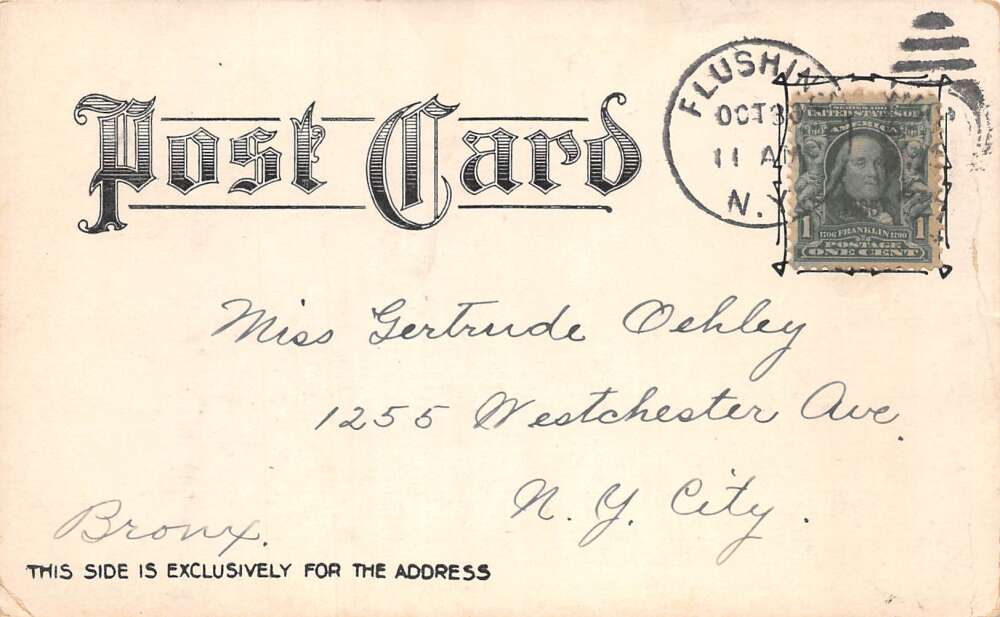 Post Card
FLUSHIN
OCT 30
11 AM
N.Y.
UNITED STATES OF
AMERICA
1 1706 FRANKLIN 1790 1
POSTAGE
ONE CENT
Miss Gertrude Oehley
1255 Westchester Ave.
N. Y. City.
Bronx.
THIS SIDE IS EXCLUSIVELY FOR THE ADDRESS